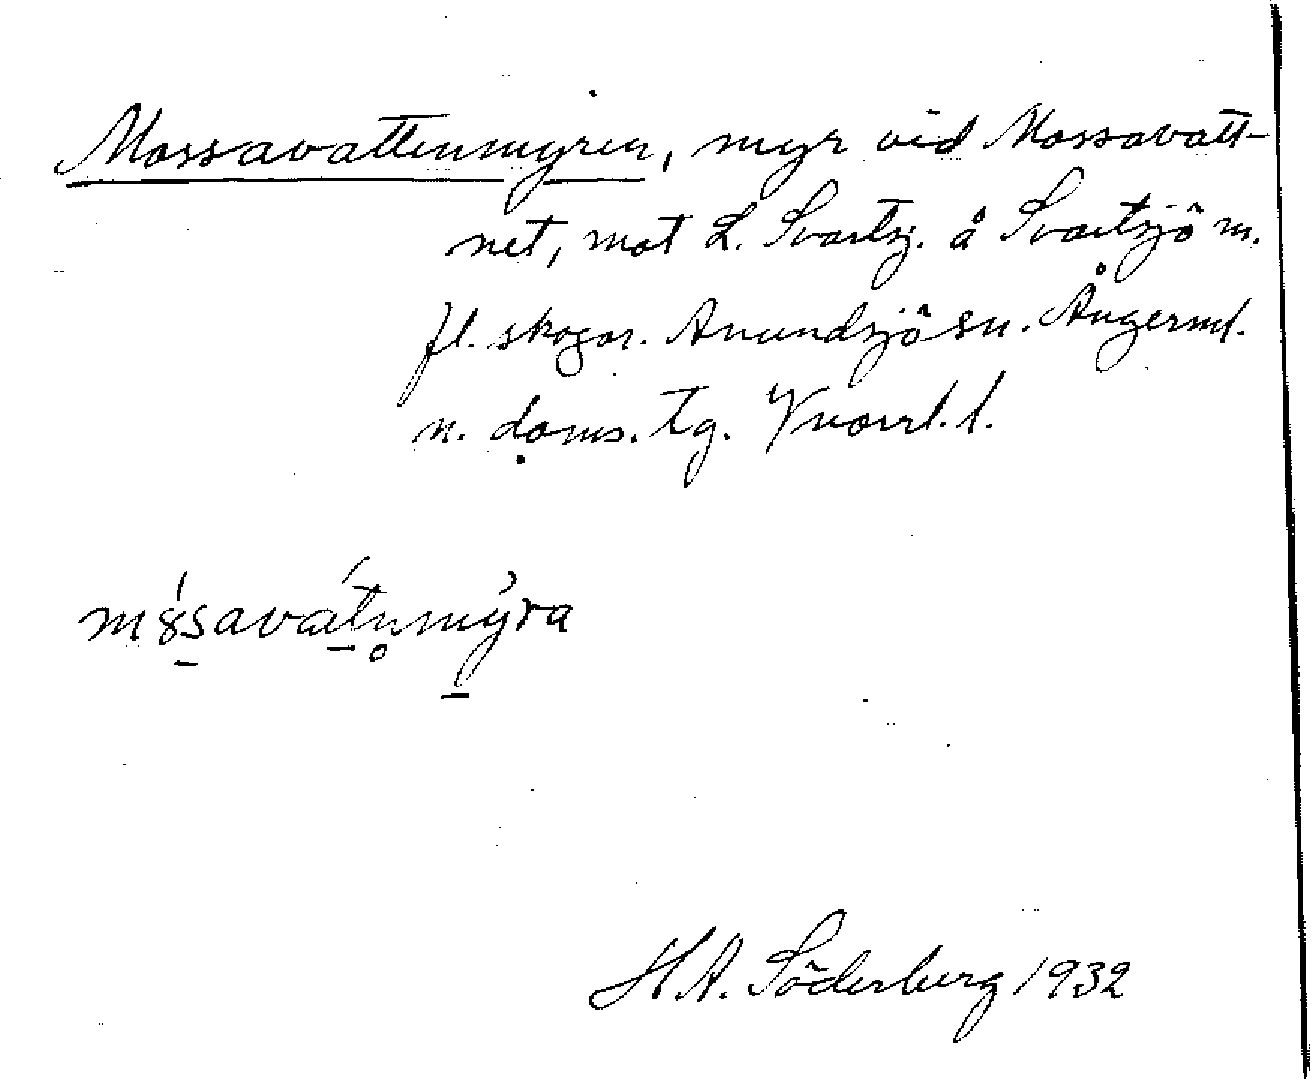 Mossavattenmyren, myr vid Mossavatt-
net, mot L. Svartsj. å Svartsjö m.
fl. skogar. Anundsjö sn. Ångerml.
n. doms. tg. Vnorrl. l.
H. A. Söderberg 1932